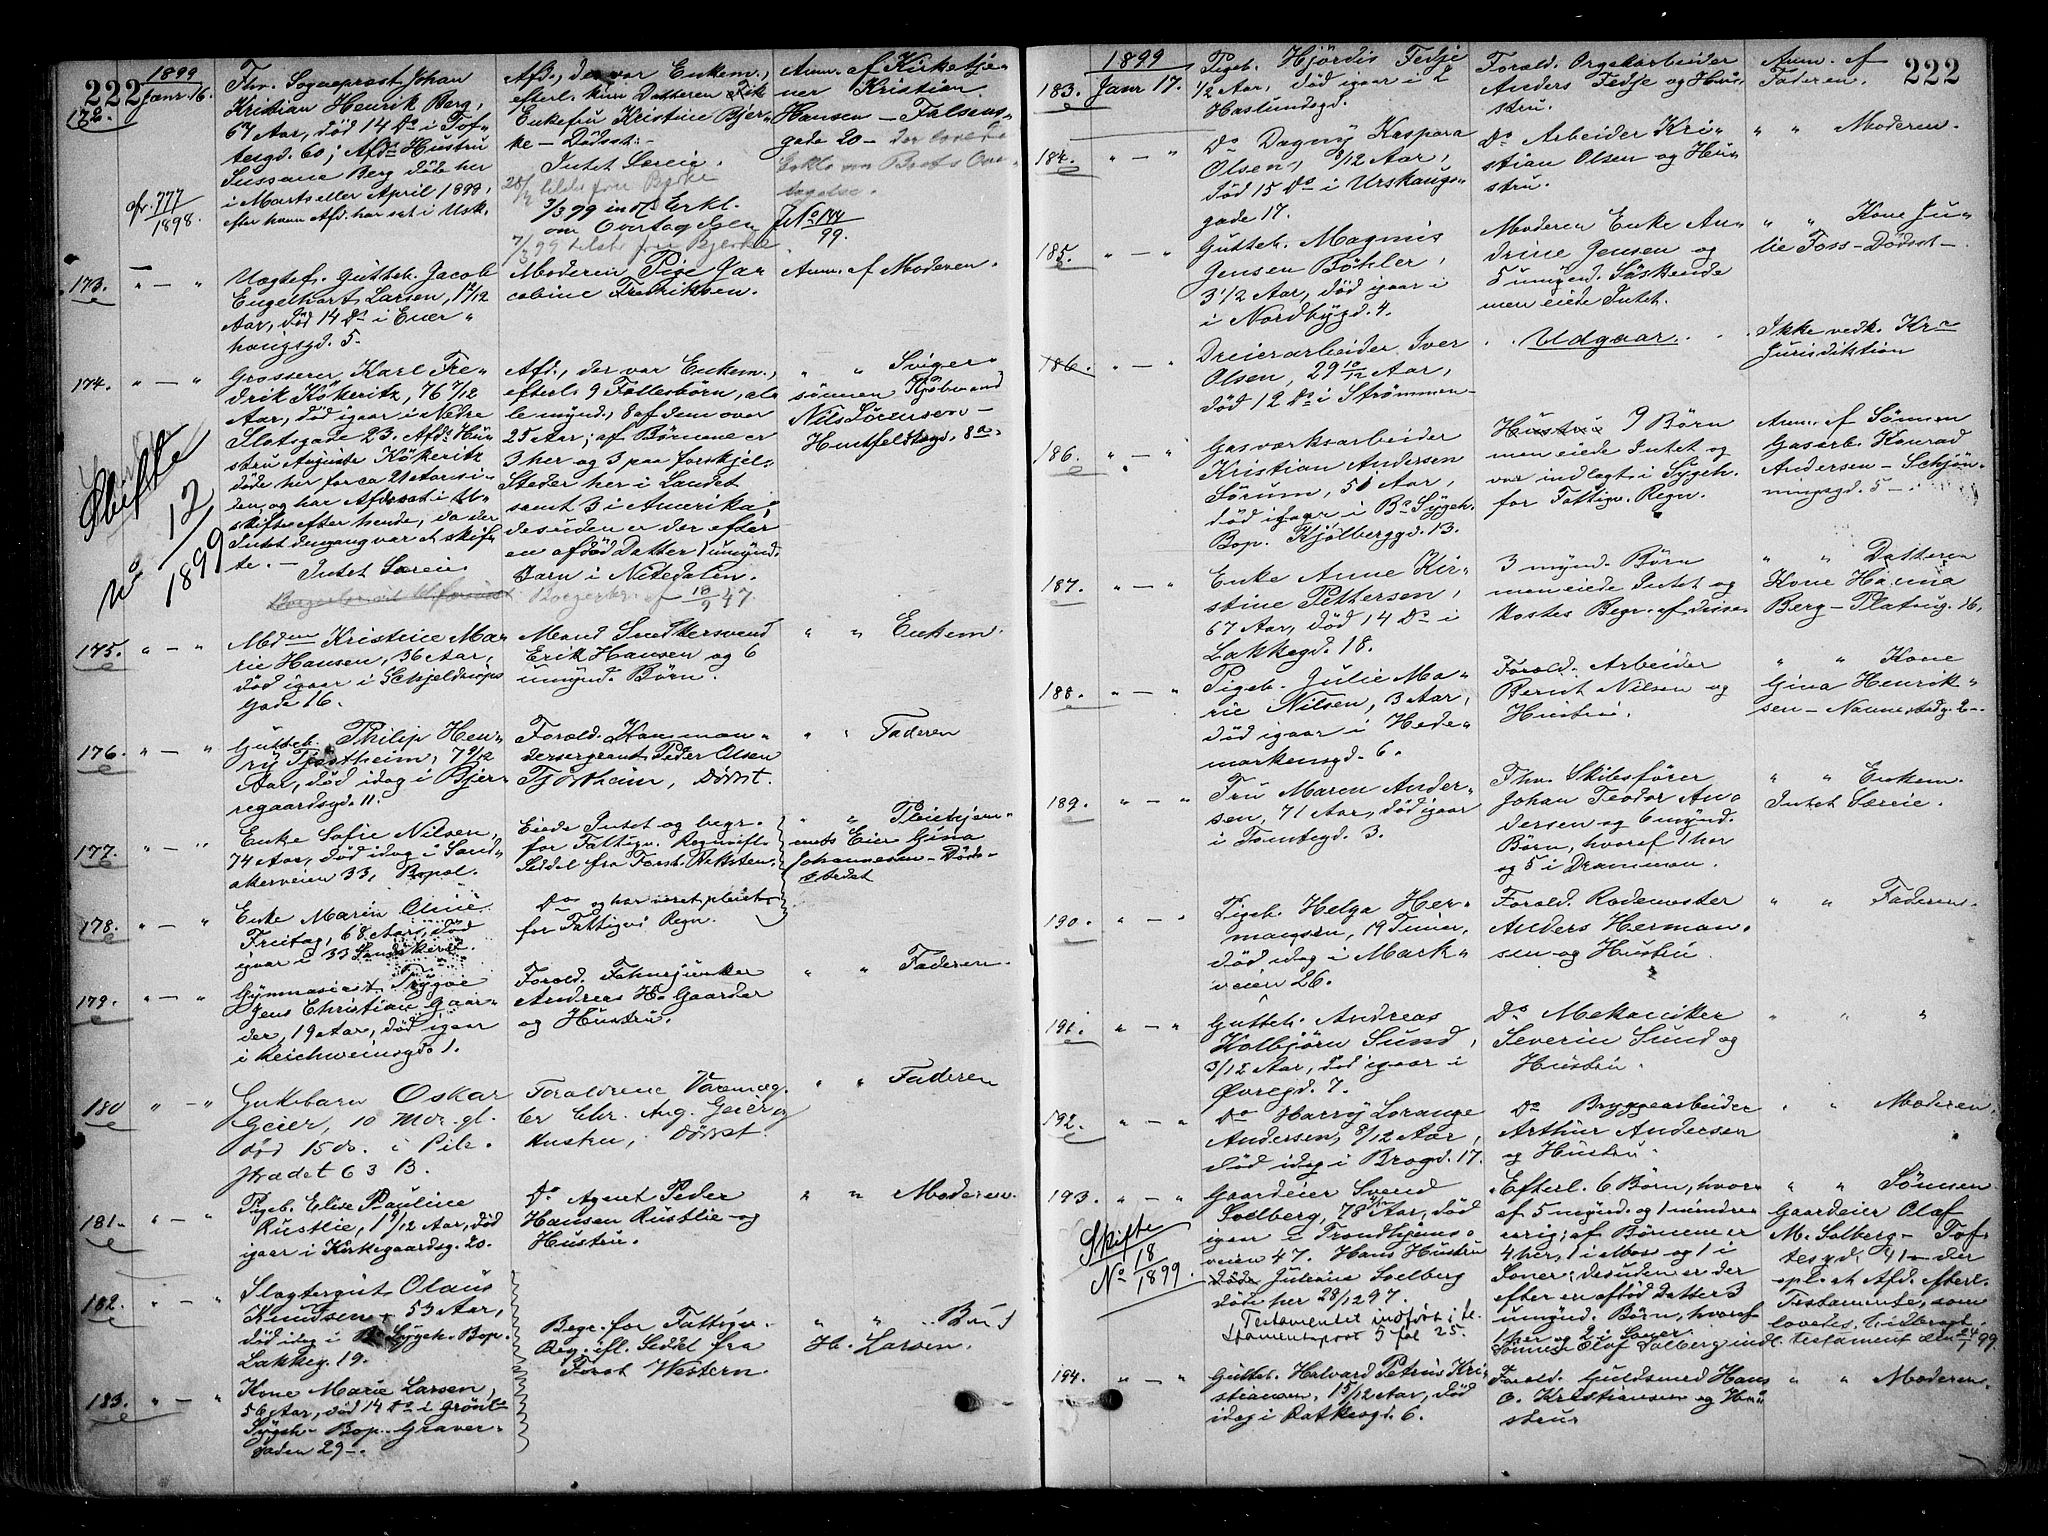 222
1899
Janr. 16.
172.
cfr. 777/1898.
Fhv. Sogneprest Johan
Kristian Henrik Berg,
67 Aar, død 14 Ds i Tof-
tesgd. 60; Afds Hustru
Sussane Berg døde her
i Marts eller April 1898,
efter hvem Afd. har sat i Usk.
Afd., der var Enkem.,
efterl. kun Datteren
Enkefru Kristine Bjer-
ke – Dødsst. –
Intet Særeie.
28/1 tilst. fru Bjerke
3/3 99 indk. Erkl.
om Overtagelsen
7/3 99 tilst. fru Bjerke
Anm. af Kirketje-
ner Kristian
Hansen – Falsens-
gade 20 –
JNo 144/99.
173. " — "
Uægtef. Gutteb. Jacob
Engelhart Larsen, 1 9/12
Aar, død 14 Ds i Ener-
haugsgd. 5.
Moderen Pige Ja-
cobine Fredriksen.
Anm. af Moderen.
174. " — "
Skifte
No 12/1899
Grosserer Karl Fre-
drik Kökeritz, 76 7/12
Aar, død igaar i Nedre
Slotsgade 23. Afds Hu-
stru Auguste Kökeritz
døde her for ca 21 Aar si-
den, og har Afd. sat i U-
skifte efter hende, da der
Intet dengang var at skif-
te. –
Intet Særeie
Afd., der var Enkem.,
efterl. 9 Fællesbörn, al-
le mynd., 8 af dem over
25 Aar; af Børnene er
3 her og 3 paa forskjel.
Steder her i Landet
samt 3 i Amerika;
desuden er der efter
en afdød Datter 1 umynd.
Barn i Nitedalen.
Begjerbr. af 10/2 47
" " Sviger-
sønnen Kjøbmand
Nils Sörensen –
Huitfeldtsgd. 8a.
175. " — "
Mdm Kristine Ma-
rie Hansen, 36 Aar,
død igaar i Schjeldrups
Gade 16.
Mand Snedkersvend
Erik Hansen og 6
umynd. Børn.
" " Enkem.
176. " — "
Gutteb. Philip Hen-
ry Tjøstheim, 7 9/12
Aar, død idag i Bjer-
regaardsgd. 11.
Forold. Komman-
dersergeant Peder Olsen
Tjöstheim, Dödsst.
" " Faderen
177. " — "
Enke Sofie Nilsen,
74 Aar, død idag i Sand-
akerveien 33, Bopæl.
Eiede Intet og begr.
for Fattigv. Regn. ifl.
Seddel fra Forst.
" " Pleiehjem-
mets Eier Gina
Johannesen – Døds-
stedet
178. " — "
Enke Maren Oline
Freitag, 68 Aar, død
igaar i 33 Sandakerv.
Do og har været pleiet
for Fattigv. Regn.
179. " — "
Gymnasiast Trygve
Jens Christian Gaar-
der, 19 Aar, død igaar
i Reichweinsgd. 1.
Forold. Fahnejunker
Andreas H. Gaarder
og Hustru.
" " Faderen.
180 " — "
Guttebarn Oskar
Geier, 10 Mdr. gl.
død 15 ds. i Pile-
stradet 63 B.
Forældrene Varemæg-
ler Chr. Aug. Geier og
Hustru, Dødsst.
" " Faderen
181. " — "
Pigeb. Elise Pauline
Rustlie, 1 9/12 Aar, död
igaar i Kirkegaardsg. 20.
Do Agent Peder
Hansen Rustlie og
Hustru.
" " Moderen.
182. " — "
Slagtergut Olaus
Knudsen, 53 Aar,
død idag i Bs Sygeh. Bop.
Lakkeg. 19.
Begr. for Fattigv.
Reg. ifl. Seddel fra
Forst. Western.
" " Bud
H. Larsen.
183. " — "
Kone Marie Larsen,
56 Aar, död 14 Ds i Grönl.
Sygeh. Bop. Graver-
gaden 29 –.
222
1899
183. Janr 17.
Pigeb. Hjördis Fedje
1/2 Aar, død igaar i 2
Haslundsgd.
Forold. Orgelarbeider
Anders Fedje og Hu-
stru.
Anm. af
Faderen.
184. " — "
Do Dagny Kaspara
Olsen, 8/12 Aar,
død 15 Ds i Urskougs-
gade 17.
Do Arbeider Kri-
stian Olsen og Hu-
stru.
" " Moderen.
185. " — "
Gutteb. Magnus
Jensen Böhler,
3 1/2 Aar, død igaar i
i Nordbygd. 4.
Moderen Enke An-
drine Jensen og
5 umynd. Söskende
men eiede Intet.
" " Kone Ju-
lie Foss – Dødsst –
186.
Dreierarbeider Iver
Olsen, 29 10/12 Aar,
død 12 Ds i Strømmen –
Udgaar.
Ikke vedk. Kra
Jurisdiktion
186. " — "
Gasværksarbeider
Kristian Andersen
Sørum, 51 Aar,
død igaar i Bs Sygeh.
Bop. Kjølberggd. 13.
Hustru 9 Børn
men eiede Intet og
var indlagt i Sygeh.
for Fattigv. Regn.
Anm. af Sønnen
Gasarb. Konrad
Andersen – Schjøn-
ningsgd. 5 –
187. " — "
Enke Anne Kir-
stine Pettersen,
67 Aar, død 14 Ds i
Lakkegd. 18.
3 mynd. Børn
men eiede Intet og
kostes Begr. af disse
" " Datteren
Kone Hanna
Berg – Platoug. 16.
188. " — "
Pigeb. Julie Ma-
rie Nilsen, 3 Aar,
død igaar i Hede-
markensgd. 6.
Forold. Arbeider
Bernt Nilsen og
Hustru.
" " Kone
Gina Henrik-
sen – Nannestadg. 2 –.
189. " — "
Fru Maren Ander-
sen, 71 Aar, død igaar
i Tomtegd. 3.
Fhv. Skibsfører
Johan Teodor An-
dersen og 6 mynd.
Børn, hvoraf 1 her
og 5 i Drammen.
" " Enkem.
Intet Særeie.
190. " — "
Pigeb. Helga Her-
mansen, 19 Timer,
død idag i Mark-
veien 26.
Forold. Rodemester
Anders Herman-
sen og Hustru.
" " Faderen.
191. " — "
Gutteb. Andreas
Kolbjørn Sund,
3/12 Aar, død igaar i
Øvregd. 7.
Do Mekaniker
Severin Sund og
Hustru.
" " "
192. " — "
Do Harry Lorange
Andersen, 8/12 Aar,
død idag i Brogd. 17.
Do Bryggearbeider
Arthur Andersen
og Hustru.
" " Moderen.
193. " — "
Skifte
No 18/1899.
Gaardeier Svend
Solberg, 78 Aar, død
igaar i Trondhjems-
veien 47. Hans Hustru
døde Juliane Solberg
døde her 28/12 97.
Testamentet indført i te-
stamentsprot 5 fol 25.
Efterl. 6 Børn, hvor-
af 5 mynd. og 1 mindre-
aarig; af Børnene er
4 her, 1 i Moss og 1 i
Soner; desuden er der
efter en afdød Datter 3
umynd. Børn, hvoraf
1 her og 2 i Soner.
Sønnen Olaf Solberg indl. testament den 24/1 99.
" " Sønnen
Gaardeier Olaf
M. Solberg – Tof-
tesgd. 41 – der
opl. at Afd. efterl.
Testamente, som
lovetes indbragt.
194. " — "
Gutteb. Halvard Petrus Kri-
stiansen, 15/12 Aar, død
idag i Ratkesgd. 6.
Forold. Guldsmed Hans
O. Kristiansen og Hu-
stru
" " Moderen.